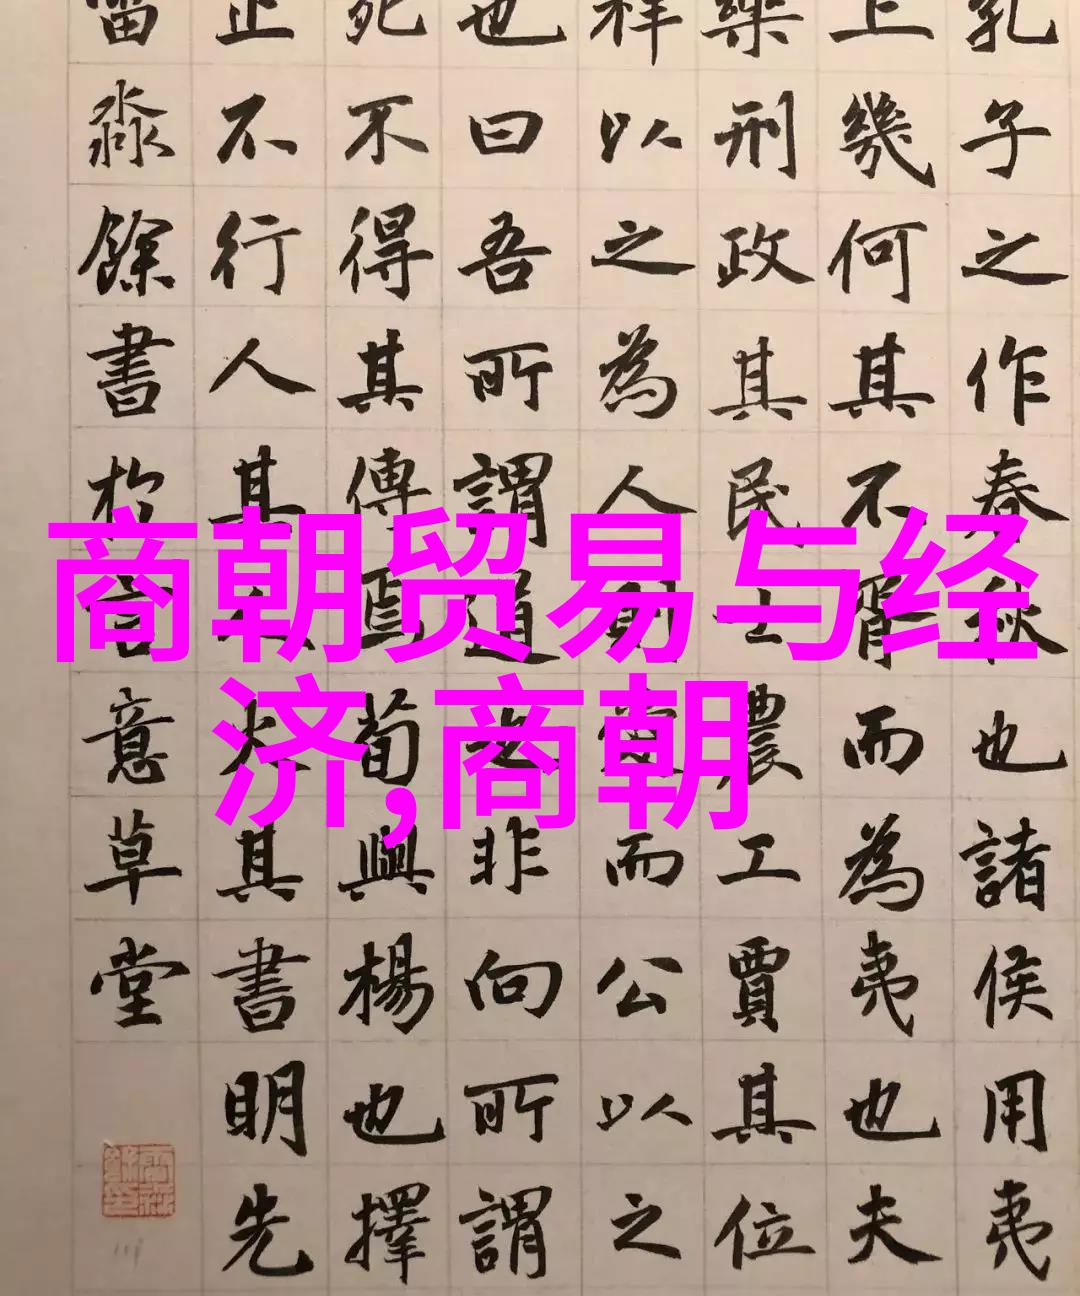 孔子之作春秋也諸侯用夷
上幾何其不胥而為夷也夫
樂刑政其民士農工賈其位
祥以之為人則愛而公以之
也曰吾所謂道也非向所謂
死不得其傳焉荀與楊也擇
止不行人其人火其書明先
淼餘書於意草堂
商朝贸易与经
济,商朝